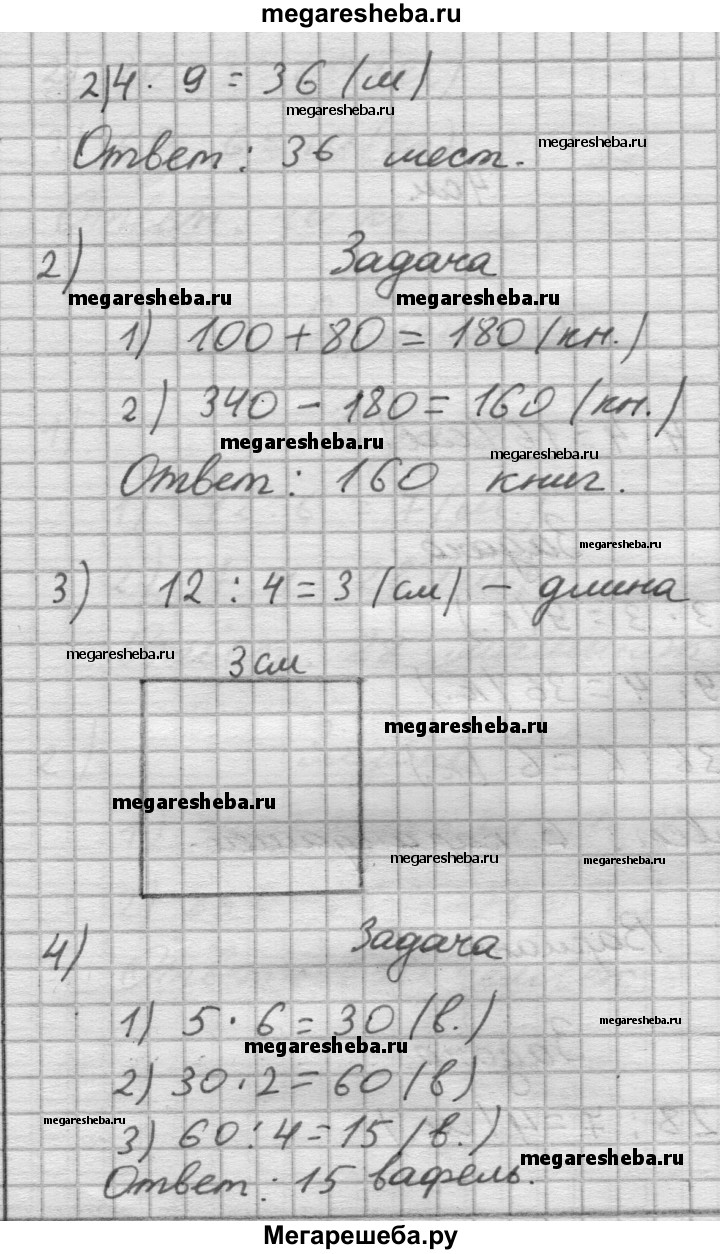 megaresheba.ru
2) 4 · 9 = 36 (м)
megaresheba.ru
Ответ: 36 мест.
megaresheba.ru
2) Задача
megaresheba.ru megaresheba.ru
1) 100 + 80 = 180 (кн.)
2) 340 - 180 = 160 (кн.)
megaresheba.ru
megaresheba.ru
Ответ: 160 книг.
megaresheba.ru
3) 12 : 4 = 3 (см) - длина
megaresheba.ru
3 см
megaresheba.ru
megaresheba.ru
megaresheba.ru megaresheba.ru
4) Задача
1) 5 · 6 = 30 (в.)
megaresheba.ru
megaresheba.ru
2) 30 · 2 = 60 (в)
megaresheba.ru
3) 60 : 4 = 15 (в.)
megaresheba.ru
Ответ: 15 вафель.
Мегарешеба.ру